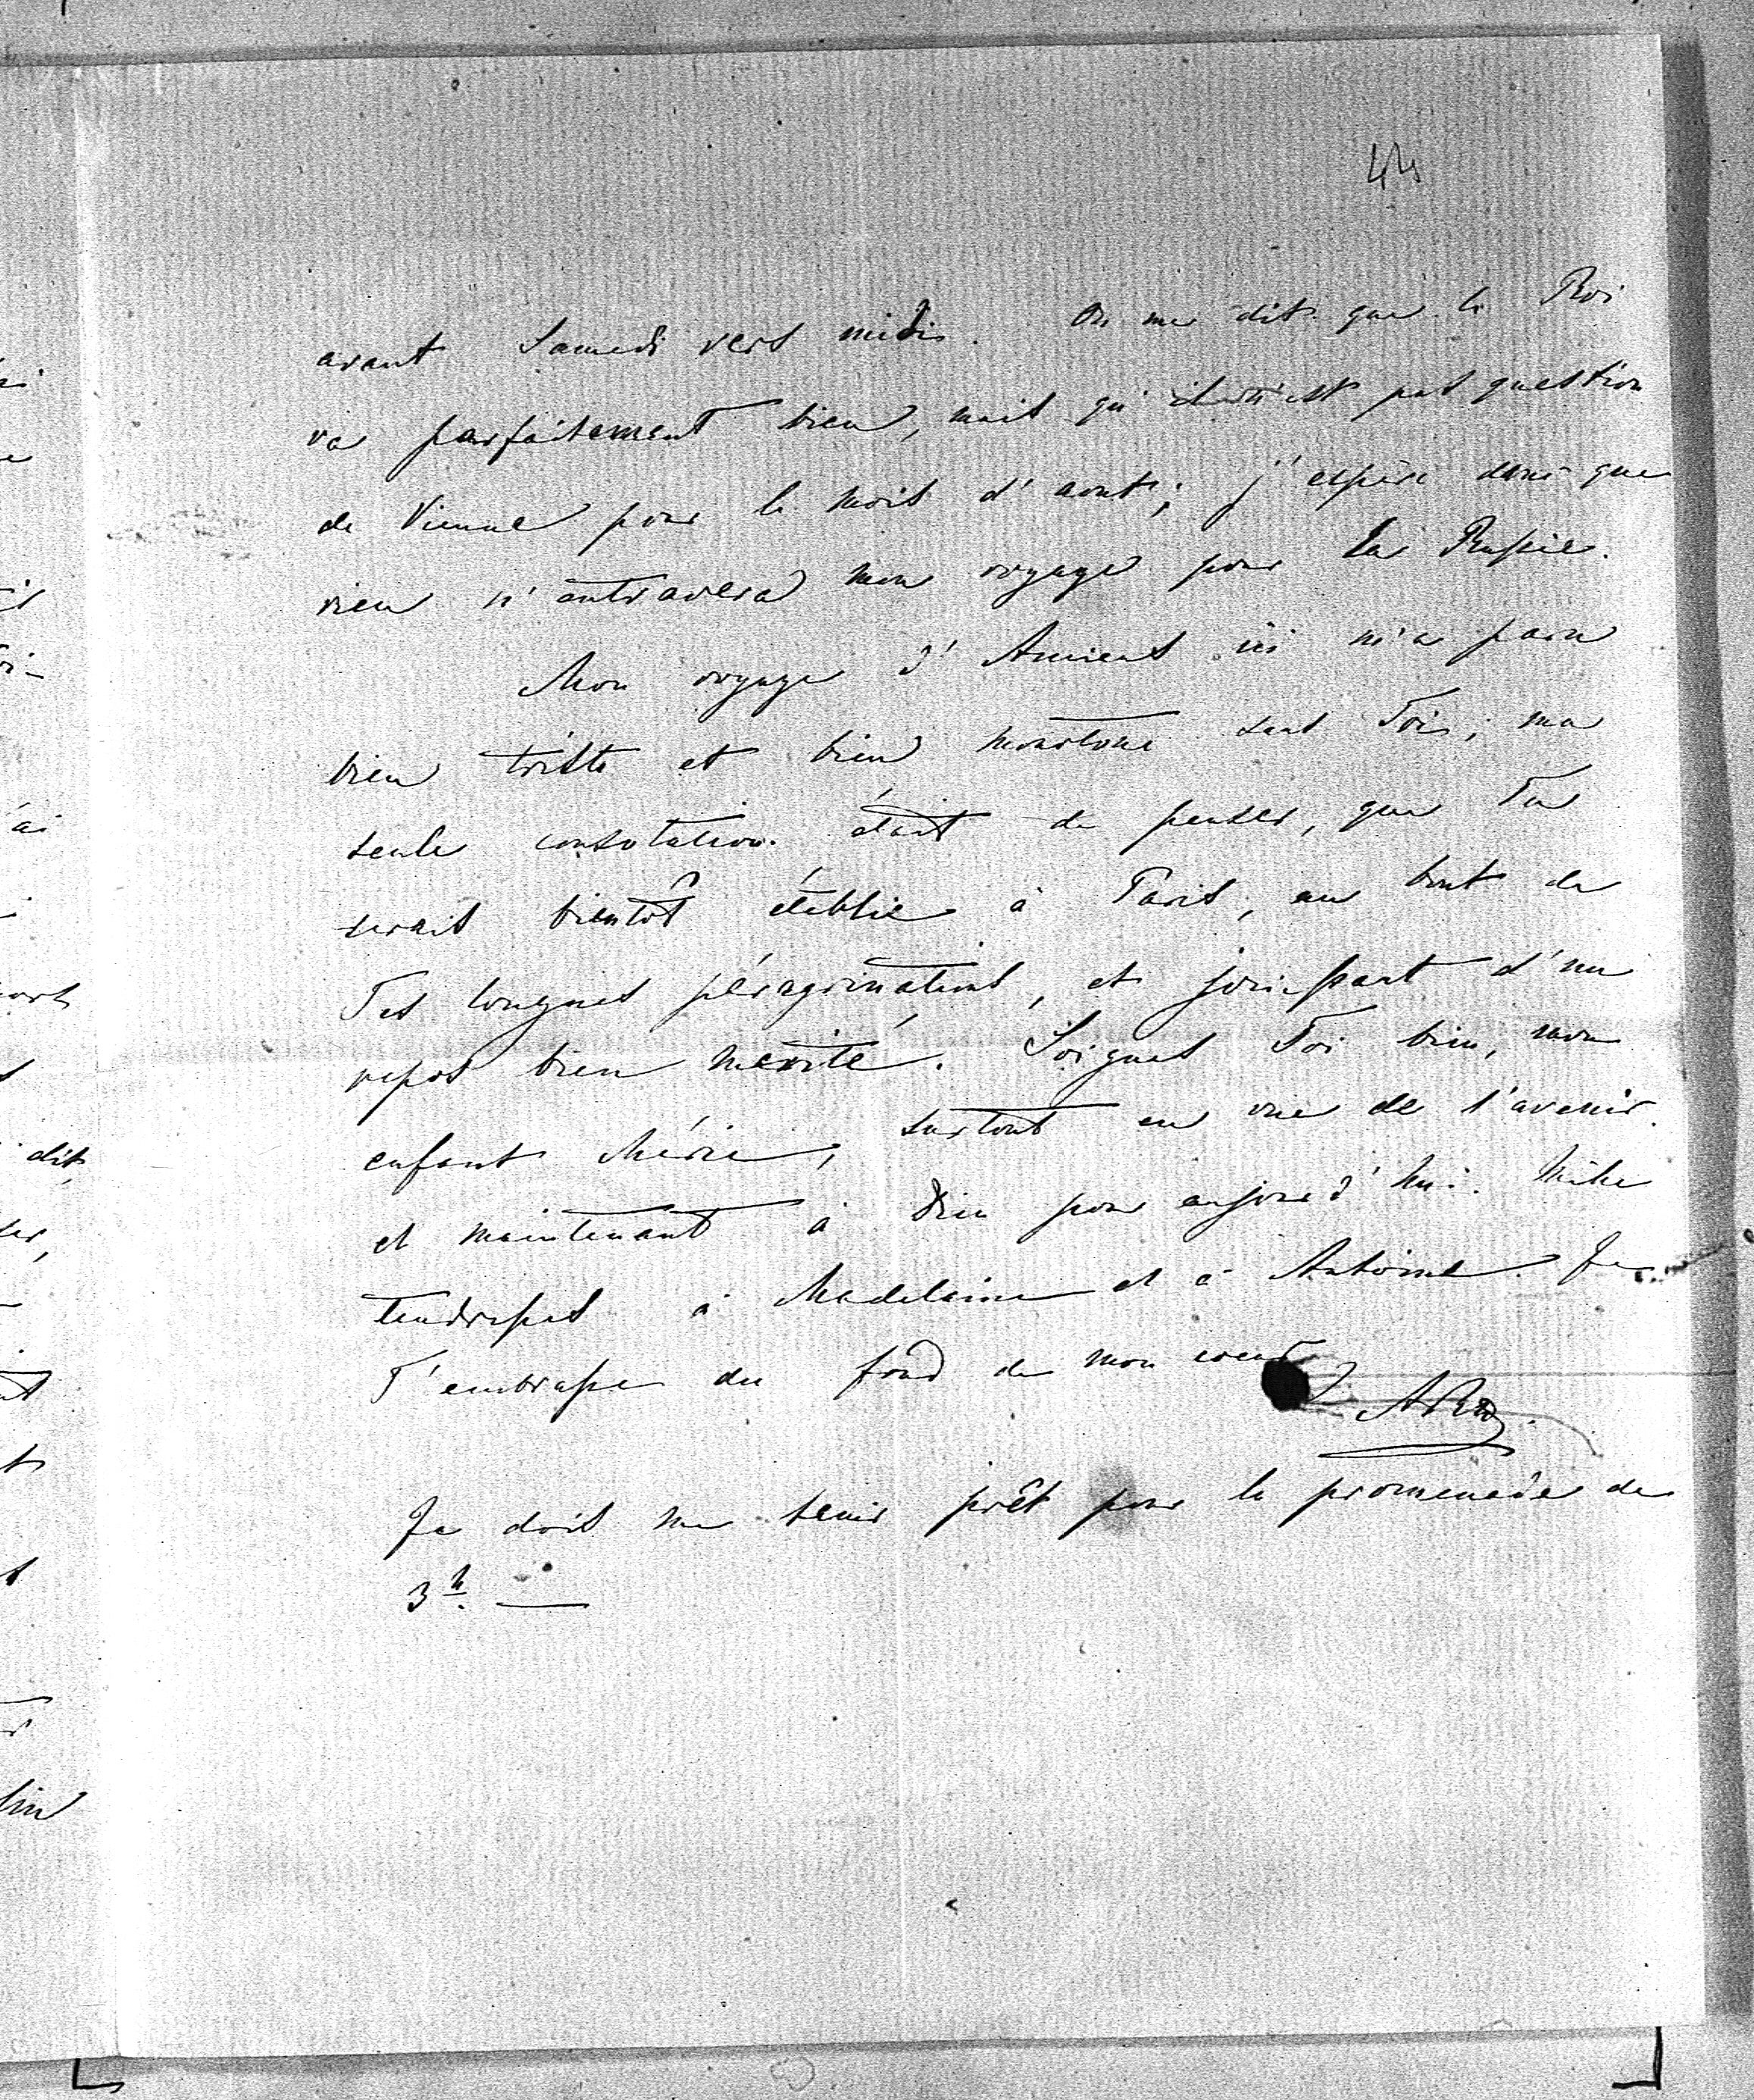 44
avant Samedi vers midi. On me dit que le Roi
va parfaitement bien, mais qu'il n'est pas question
de Vienne pour le mois d'aout; j'espère donc que
rien n'entravera mon voyage pour la Russie.
Mon voyage d'Amiens ici m'a paru
bien triste et bien monotone sans Toi; ma
seule consolation était de penser, que Tu
serais bientôt établie à Paris, au bout de
Tes longues pérégrinations, et jouissant d'un
repos bien mérité. Soignes Toi bien, mon
enfant chérie, surtout en vue de l'avenir.
et maintenant à Dieu pour aujourd'hui. Mille
tendresses à Madelaine et à Antoine. Je
T'embrasse du fond de mon coeur
Je dois me tenir prêt pour la promenade de
3h. —